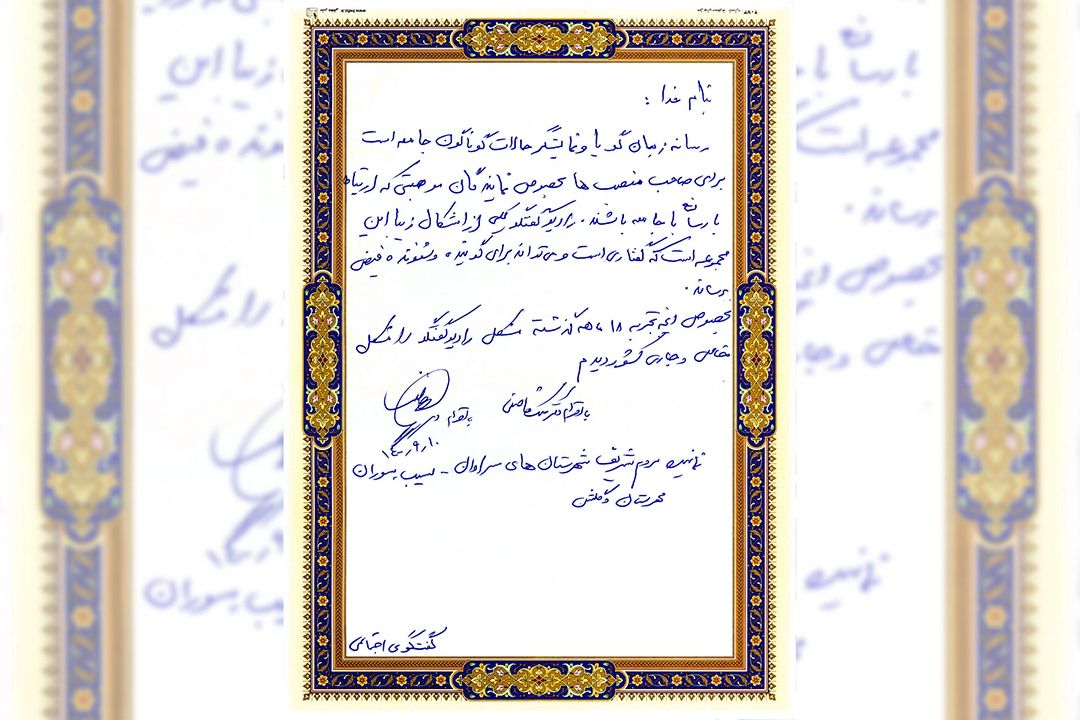 بنام خدا :
رسانه زبان گویا و نمایشگر حالات گوناگون جامعه است
برای صاحب منصب ها بخصوص نمایندگان موهبتی که ارتباط
با رسانه با جامعه باشند . رادیو گفتگو یکی از اشکال زیبا این
مجموعه است که گفتاری است و می تواند برای گوینده و شنونده فیض
برساند .
بخصوص تجربه ۱۸ ماهه گذشته مشکل رادیو گفتگو را مشکل
و جاری کشور دیدم
با تقدیم
۱۴۰۰,۹,۱۰
نماینده مردم شریف شهرستان های سراوان - سیب و سوران
مهرستان و گلشن
گفتگوی اجتماعی
www.hafiz.ir